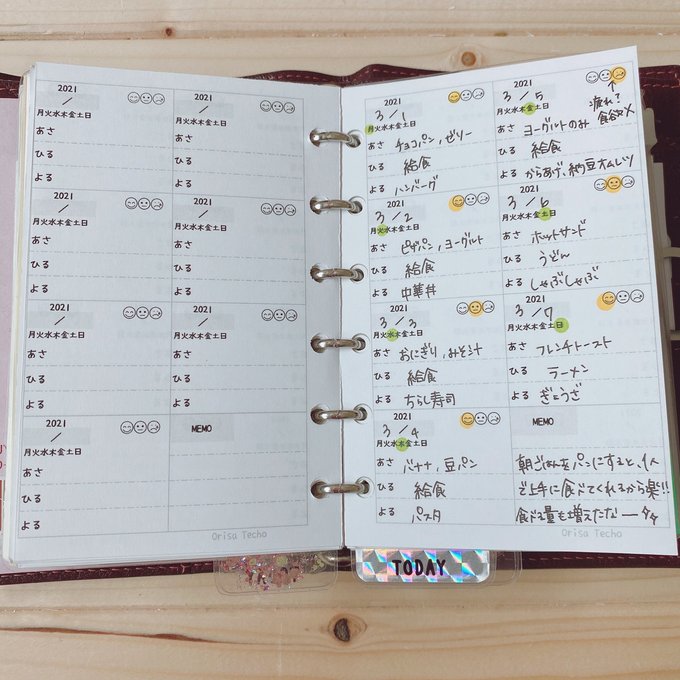 2021
/
月火水木金土日
あさ
ひる
よる
2021
/
月火水木金土日
あさ
ひる
よる
2021
/
月火水木金土日
あさ
ひる
よる
2021
/
月火水木金土日
あさ
ひる
よる
2021
/
月火水木金土日
あさ
ひる
よる
2021
/
月火水木金土日
あさ
ひる
よる
2021
/
月火水木金土日
あさ
ひる
よる
MEMO
Orisa Techo
2021
3/1
月火水木金土日
あさ チョコパン, ゼリー
ひる 給食
よる ハンバーグ
2021
3/2
月火水木金土日
あさ ピザパン, ヨーグルト
ひる 給食
よる 中華丼
2021
3/3
月火水木金土日
あさ おにぎり, みそ汁
ひる 給食
よる ちらし寿司
2021
3/4
月火水木金土日
あさ バナナ, 豆パン
ひる 給食
よる パスタ
2021
3/5
月火水木金土日
疲れて
食欲×
あさ ヨーグルトのみ
ひる 給食
よる からあげ, 納豆オムレツ
2021
3/6
月火水木金土日
あさ ホットサンド
ひる うどん
よる しゃぶしゃぶ
2021
3/7
月火水木金土日
あさ フレンチトースト
ひる ラーメン
よる ぎょうざ
MEMO
朝ごはんをパンにすると、1人
で上手に食べてくれるから楽!!
食べる量も増えた
Orisa Techo
TODAY